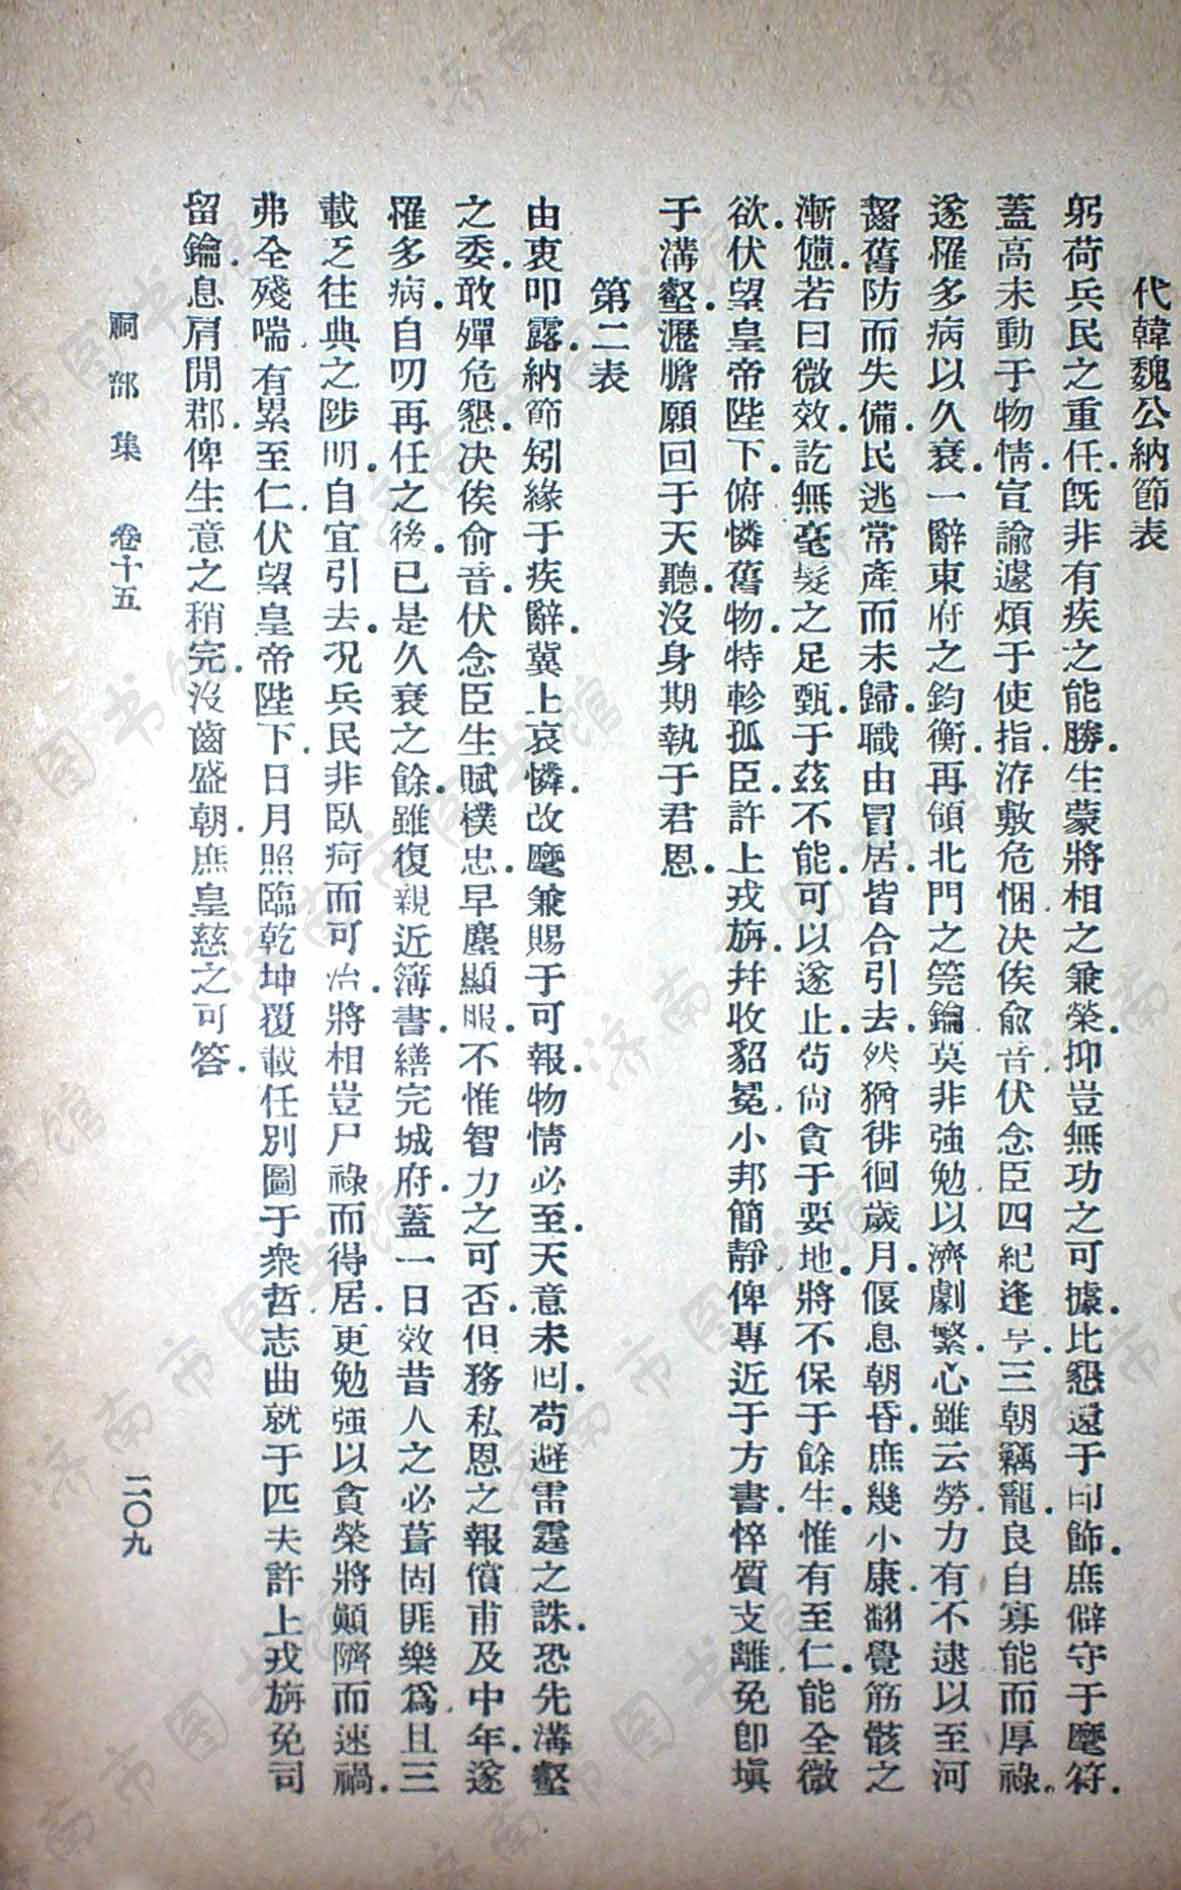 代韓魏公納節表
躬荷兵民之重任.旣非有疾之能勝.生蒙將相之兼榮.抑豈無功之可據.比懇還于印飾.庶僻守于麾符.
蓋高未動于物情.宣諭遽煩于使指.洊敷危悃.决俟俞音.伏念臣四紀逢辰.三朝竊寵.良自寡能而厚祿.
遂罹多病以久衰.一辭東府之鈞衡.再領北門之筦鑰.莫非強勉.以濟劇繁.心雖云勞.力有不逮.以至河
齧舊防而失備.民逃常產而未歸.職由冒居.皆合引去.然猶徘徊歲月.偃息朝昏.庶幾小康.翻覺筋骸之
漸憊.若曰微效.訖無毫髮之足甄.于茲不能.可以遂止.苟尙貪于要地.將不保于餘生.惟有至仁.能全微
欲.伏望皇帝陛下.俯憐舊物.特軫孤臣.許上戎旃.幷收貂冕.小邦簡靜.俾專近于方書.悴質支離.免卽塡
于溝壑.瀝膽願回于天聽.沒身期執于君恩.
第二表
由衷叩露.納節矧緣于疾辭.冀上哀憐.改麾兼賜于可報.物情必至.天意未囘.苟避雷霆之誅.恐先溝壑
之委.敢殫危懇.决俟俞音.伏念臣生賦樸忠.早塵顯服.不惟智力之可否.但務私恩之報償.甫及中年.遂
罹多病.自叨再任之後.已是久衰之餘.雖復親近簿書.繕完城府.蓋一日效昔人之必葺.固匪樂爲.且三
載乏往典之陟明.自宜引去.况兵民非臥疴而可治.將相豈尸祿而得居.更勉強以貪榮.將顚隮而速禍.
弗全殘喘.有累至仁.伏望皇帝陛下.日月照臨.乾坤覆載.任別圖于衆哲.志曲就于匹夫.許上戎旃.免司
留鑰.息肩閒郡.俾生意之稍完.沒齒盛朝.庶皇慈之可答.
祠部集 卷十五
二〇九
济南市图书馆